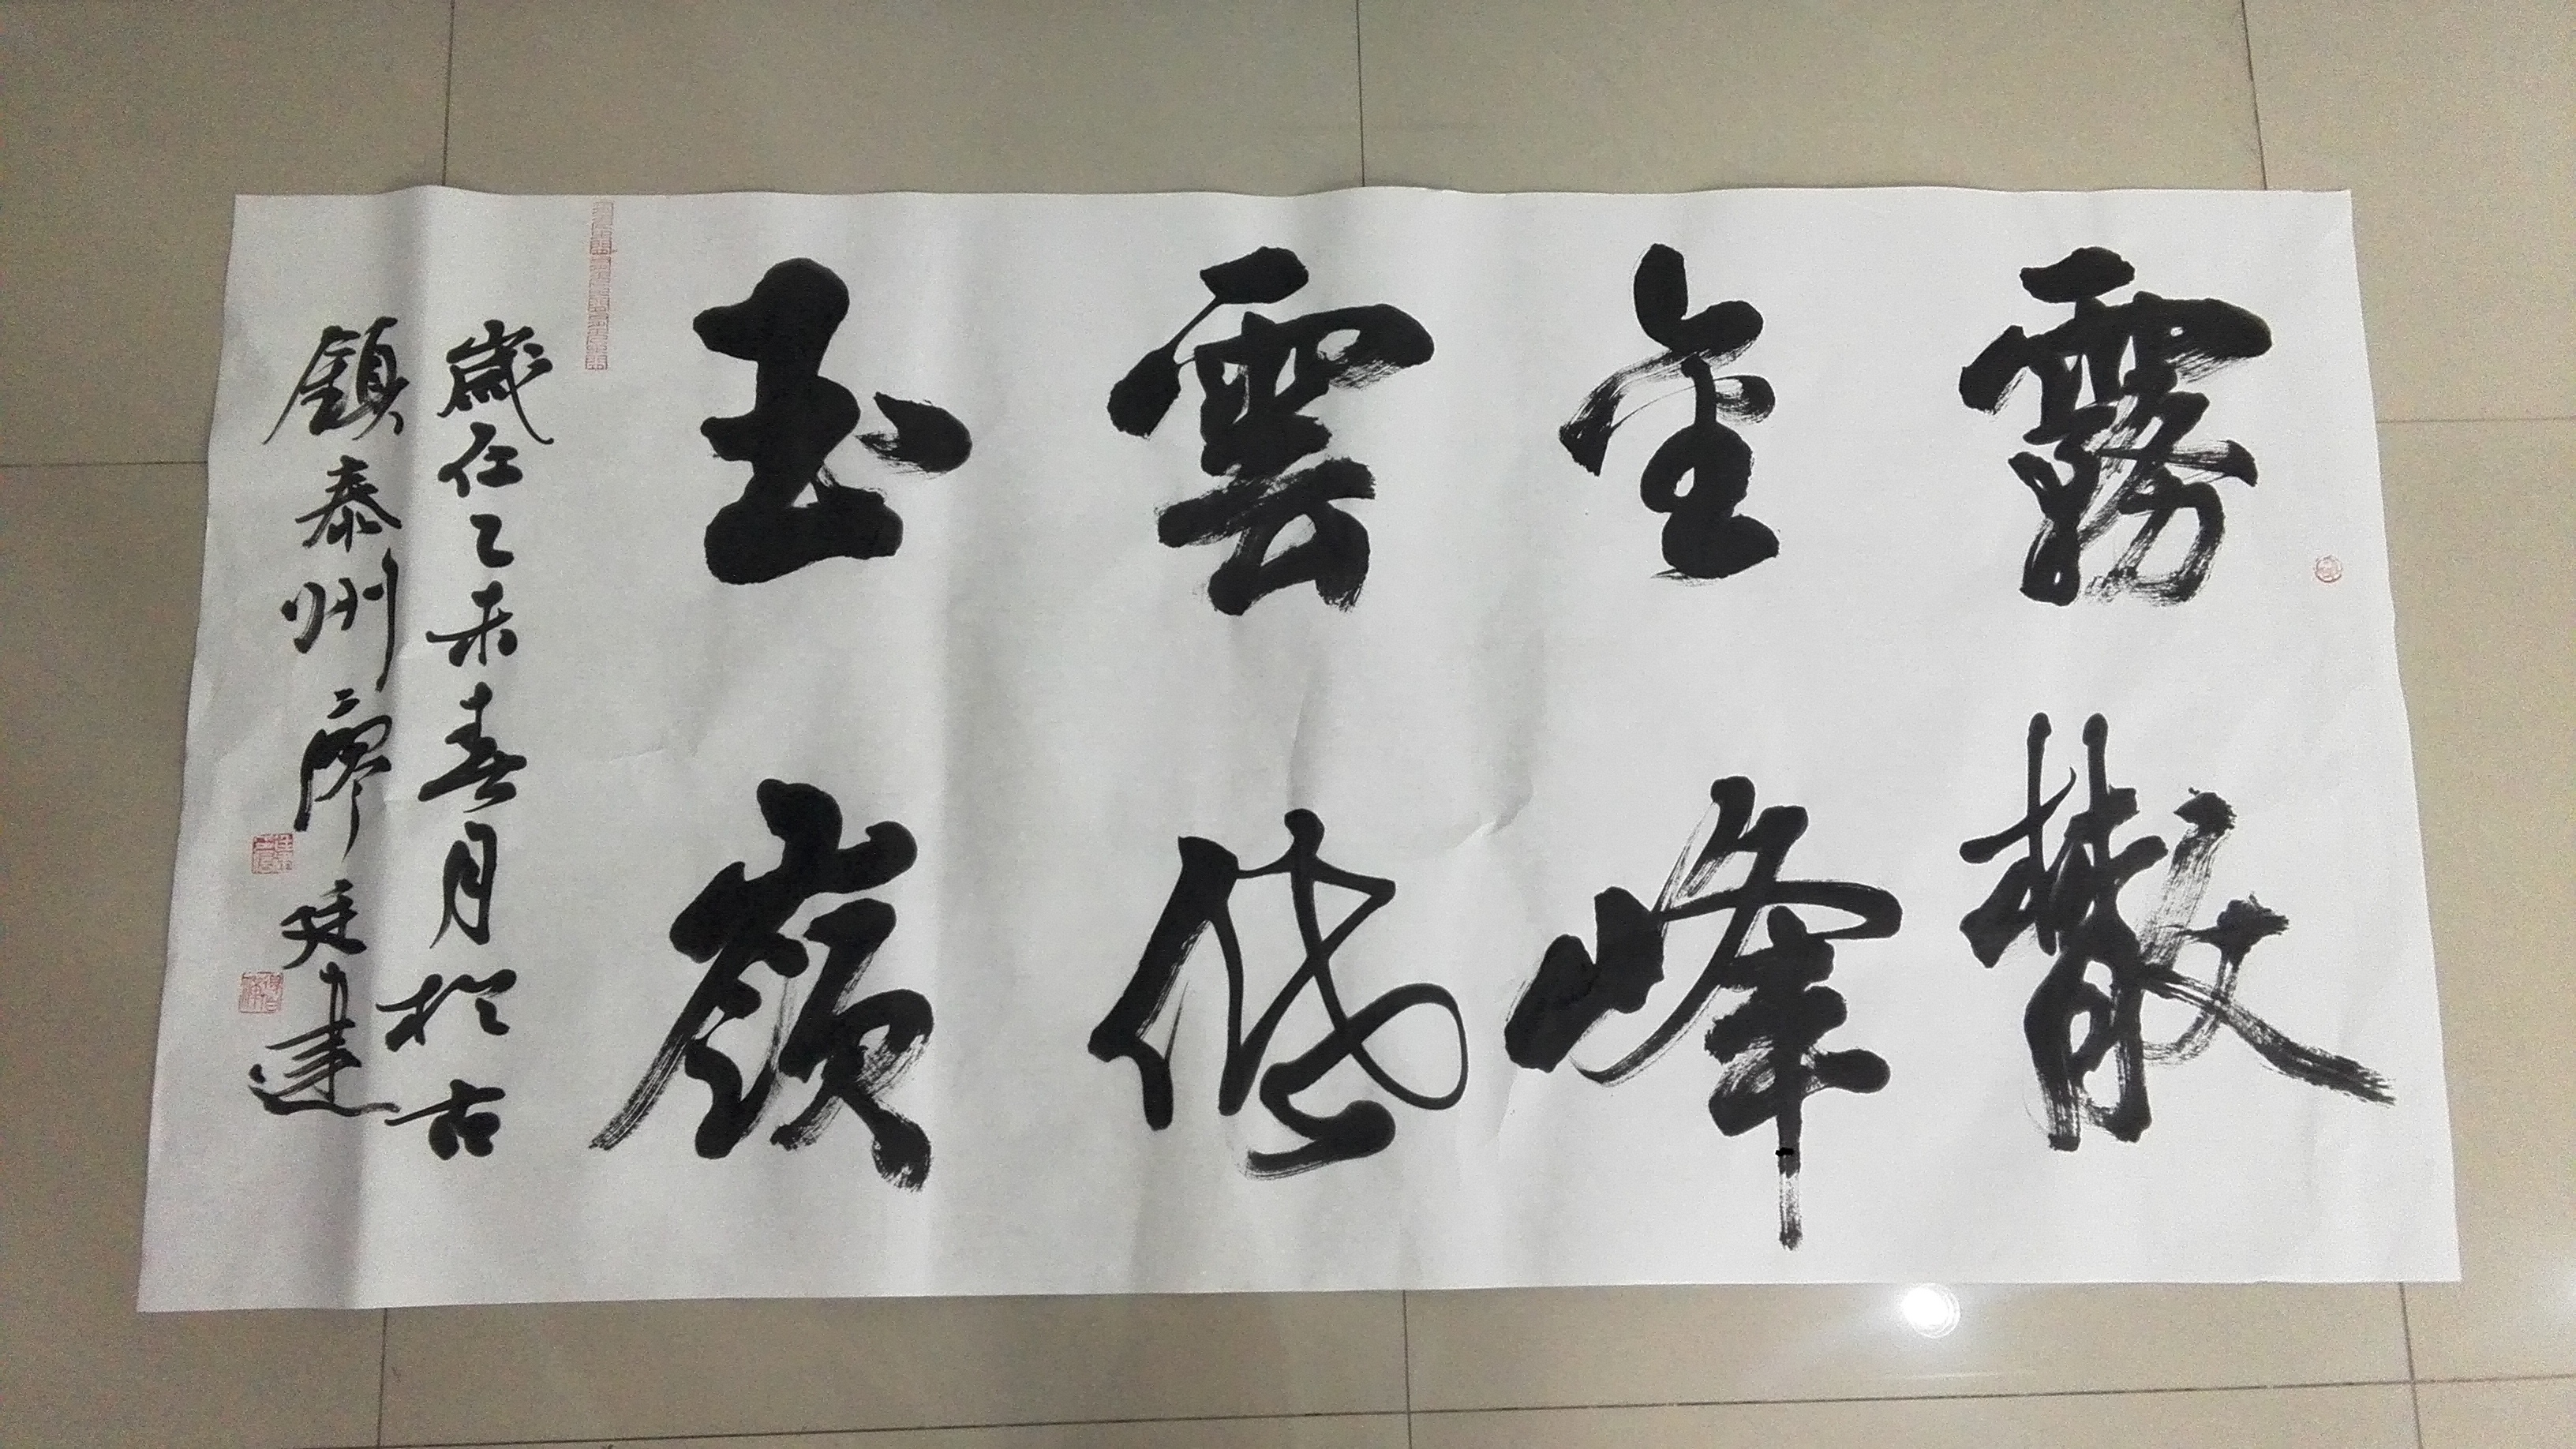 霧散
金峰
雲低
玉嶺
歲在乙未春月於古
鎮泰州廖延建